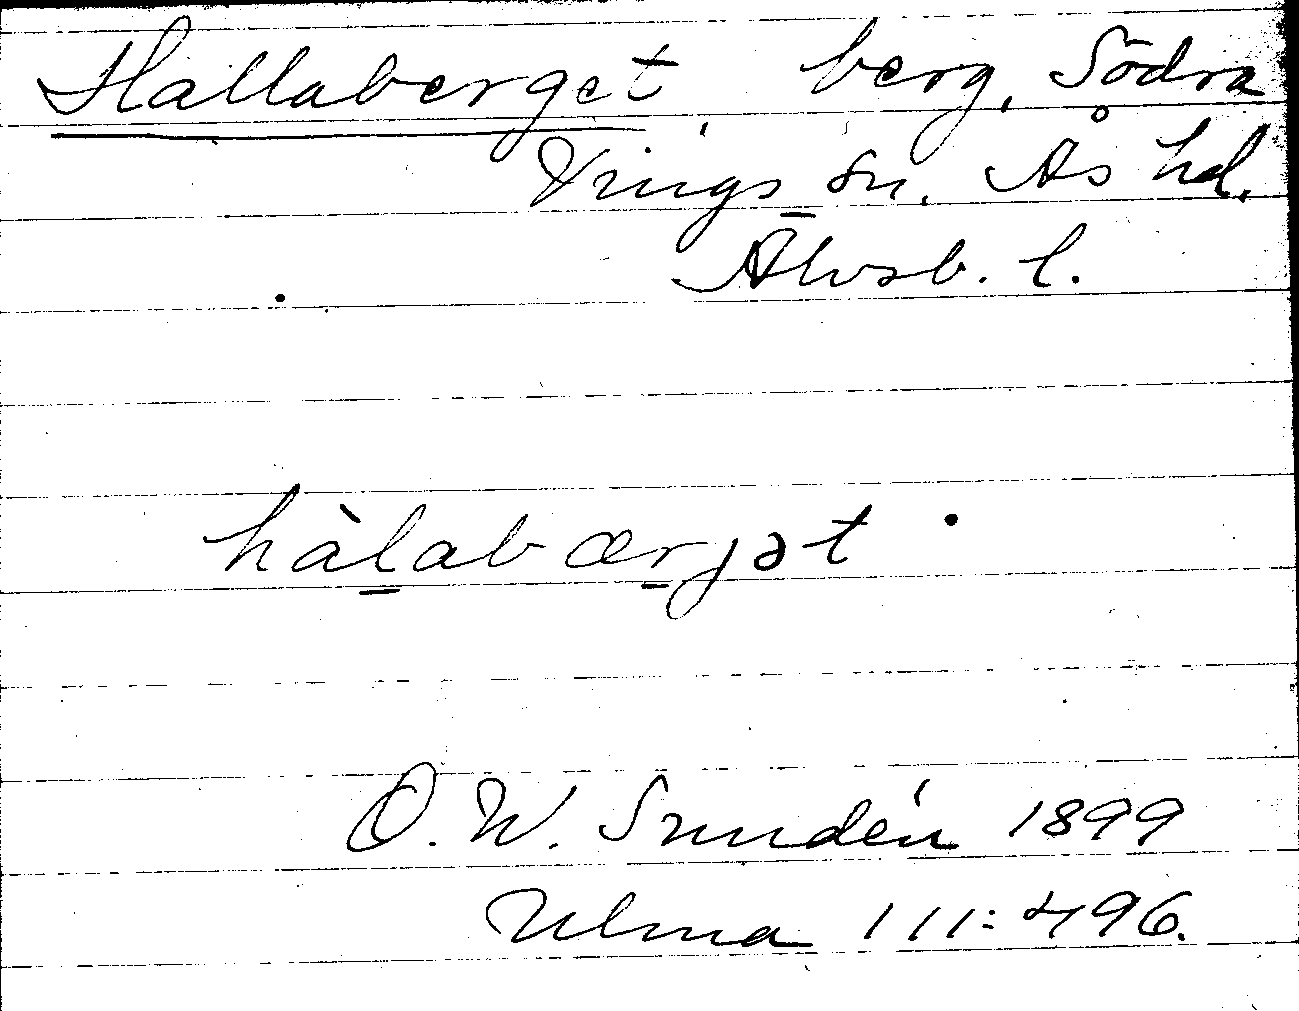 Hallaberget berg, Södra
Vings sn. Ås hd.
Älvsb. l.
hàlabærjət
O. W. Sundén 1899
Ulma 111:496.